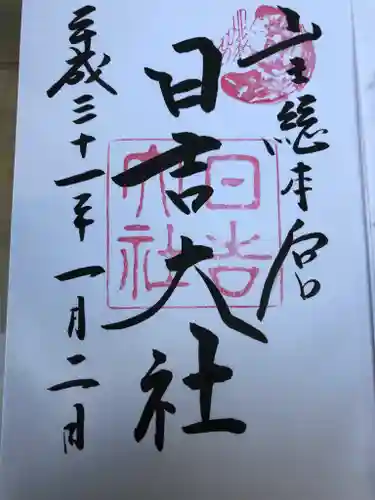 山王総本宮
日吉大社
平成三十一年一月二日
日吉大社